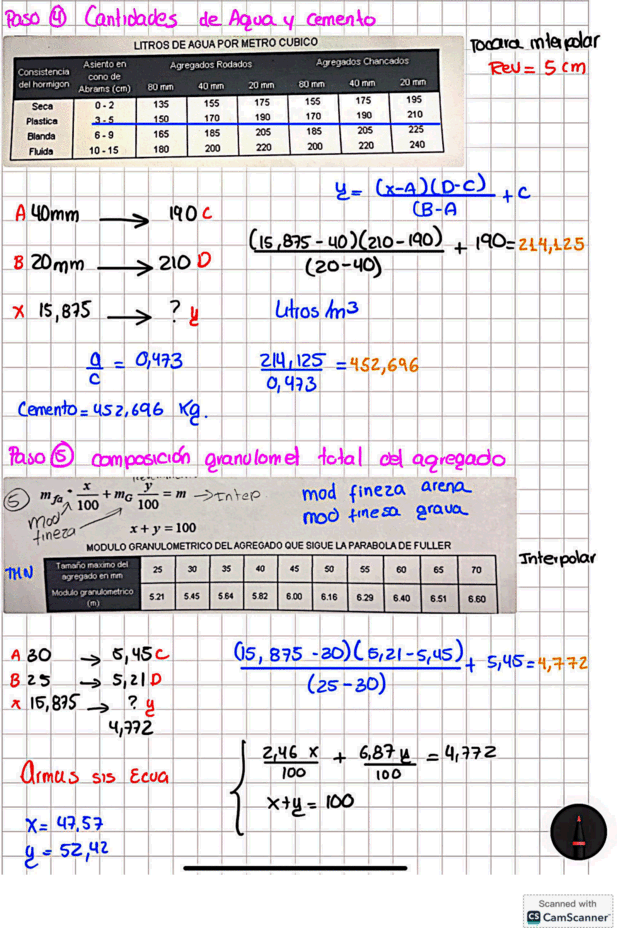 Paso ④ Cantidades de Agua y cemento
LITROS DE AGUA POR METRO CUBICO
Tocara interpolar
Rev = 5 cm
Consistencia del hormigon | Asiento en cono de Abrams (cm) | Agregados Rodados | Agregados Chancados
80 mm 40 mm 20 mm 80 mm 40 mm 20 mm
Seca 0 - 2 135 155 175 155 175 195
Plastica 3 - 5 150 170 190 170 190 210
Blanda 6 - 9 165 185 205 185 205 225
Fluida 10 - 15 180 200 220 200 220 240
y = (x-A)(D-C)/(B-A + C
A 40mm → 190 C
B 20mm → 210 D
x 15,875 → ? y
(15,875-40)(210-190)/(20-40) + 190 = 214,125
Litros/m3
a/c = 0,473
214,125/0,473 = 452,696
Cemento = 452,696 Kg.
Paso ⑤ composición granulomet total del agregado
⑤ m_fa · x/100 + m_G y/100 = m → Interp
mod fineza
x + y = 100
mod fineza arena
mod finesa grava
MODULO GRANULOMETRICO DEL AGREGADO QUE SIGUE LA PARABOLA DE FULLER
Interpolar
TMN
Tamaño maximo del agregado en mm 25 30 35 40 45 50 55 60 65 70
Modulo granulometrico (m) 5.21 5.45 5.64 5.82 6.00 6.16 6.29 6.40 6.51 6.60
A 30 → 5,45 C
B 25 → 5,21 D
x 15,875 → ? y
4,772
(15,875-30)(5,21-5,45)/(25-30) + 5,45 = 4,772
Armas sis Ecua
2,46 x/100 + 6,87 y/100 = 4,772
x+y = 100
x = 47,57
y = 52,42
Scanned with
CS CamScanner